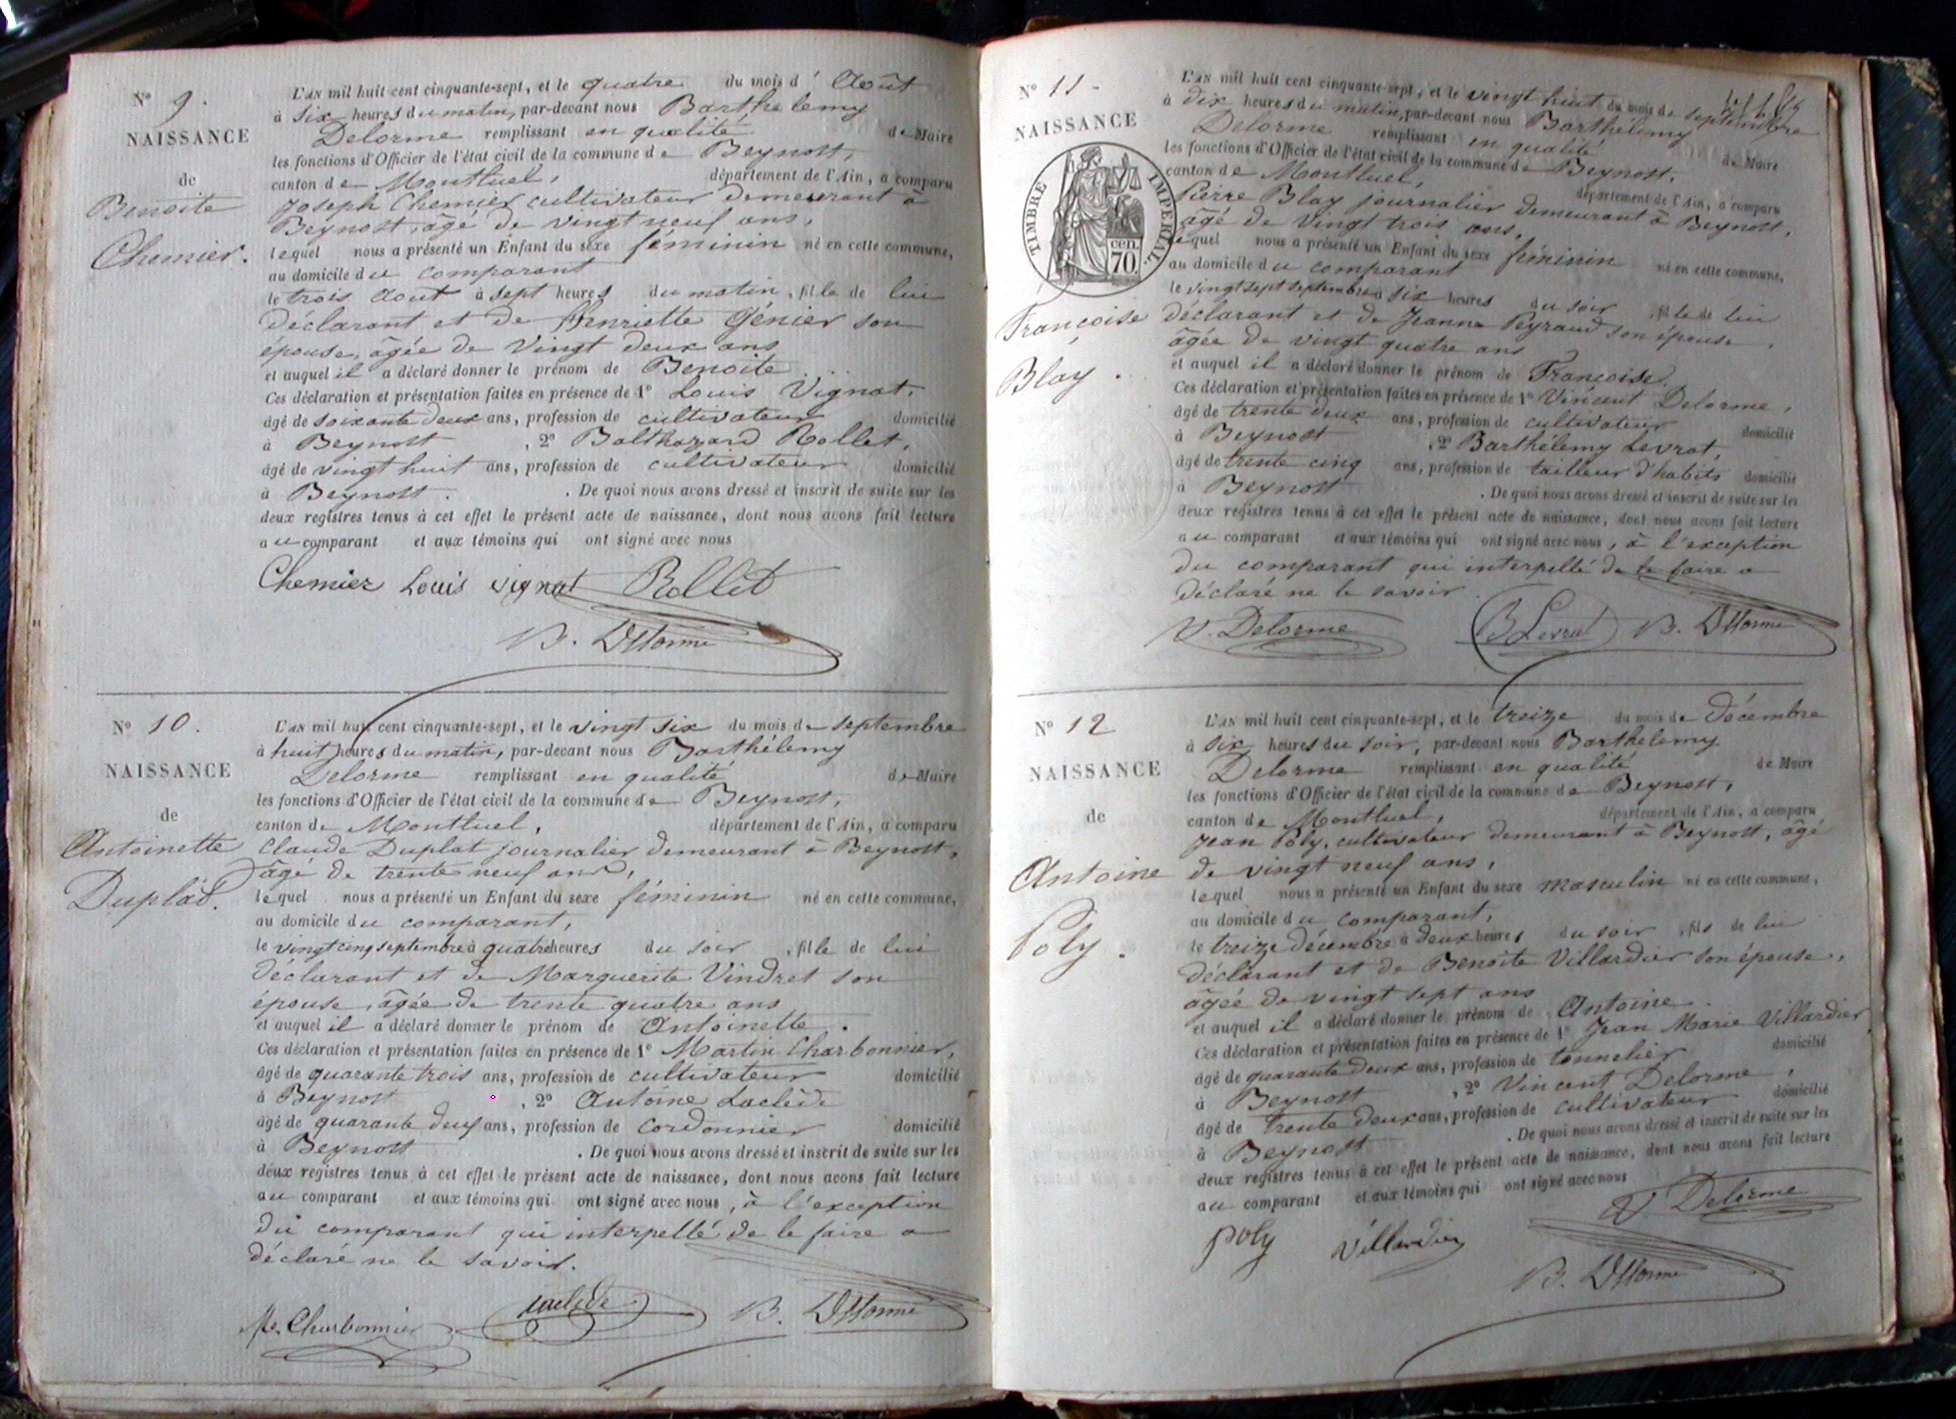 N° 9.
NAISSANCE
de
Benoite
Chemier.
L'AN mil huit cent cinquante-sept, et le quatre du mois d' Août
à six heures du matin, par-devant nous Barthélemy
Delorme remplissant en qualité de Maire
les fonctions d'Officier de l'état civil de la commune de Beynost,
canton de Montluel, département de l'Ain, a comparu
Joseph Chemier cultivateur demeurant à
Beynost, âgé de vingt neuf ans,
lequel nous a présenté un Enfant du sexe féminin né en cette commune,
au domicile du comparant
le trois Aout à sept heures du matin, fille de lui
déclarant et de Henriette Génier son
épouse, âgée de Vingt deux ans
et auquel il a déclaré donner le prénom de Benoite
Ces déclaration et présentation faites en présence de 1° Louis Vignat,
âgé de soixante deux ans, profession de cultivateur domicilié
à Beynost , 2° Balthazard Rollet,
âgé de vingt huit ans, profession de cultivateur domicilié
à Beynost . De quoi nous avons dressé et inscrit de suite sur les
deux registres tenus à cet effet le présent acte de naissance, dont nous avons fait lecture
au comparant et aux témoins qui ont signé avec nous
Chemier Louis vignat Rollet
B. Delorme
N° 10.
NAISSANCE
de
Antoinette
Duplat.
L'AN mil huit cent cinquante-sept, et le vingt six du mois de septembre
à huit heures du matin, par-devant nous Barthélemy
Delorme remplissant en qualité de Maire
les fonctions d'Officier de l'état civil de la commune de Beynost,
canton de Montluel, département de l'Ain, a comparu
Claude Duplat journalier demeurant à Beynost,
âgé de trente neuf ans,
lequel nous a présenté un Enfant du sexe féminin né en cette commune,
au domicile du comparant,
le vingt cinq septembre à quatre heures du soir , fille de lui
déclarant et de Marguerite Vindret son
épouse, âgée de trente quatre ans
et auquel il a déclaré donner le prénom de Antoinette.
Ces déclaration et présentation faites en présence de 1° Martin Charbonnier,
âgé de quarante trois ans, profession de cultivateur domicilié
à Beynost , 2° Antoine Laclède
âgé de quarante deux ans, profession de cordonnier domicilié
à Beynost . De quoi nous avons dressé et inscrit de suite sur les
deux registres tenus à cet effet le présent acte de naissance, dont nous avons fait lecture
au comparant et aux témoins qui ont signé avec nous, à l'exception
du comparant qui interpellé de le faire a
déclaré ne le savoir.
Charbonnier Laclède B. Delorme
N° 11.
NAISSANCE
TIMBRE IMPERIAL
70 cen.
Françoise
Blay.
L'AN mil huit cent cinquante-sept, et le vingt huit du mois de septembre
à dix heures du matin, par-devant nous Barthélemy
Delorme remplissant en qualité de Maire
les fonctions d'Officier de l'état civil de la commune de Beynost,
canton de Montluel, département de l'Ain, a comparu
Pierre Blay journalier demeurant à Beynost,
âgé de vingt trois ans,
lequel nous a présenté un Enfant du sexe féminin né en cette commune,
au domicile du comparant
le vingt sept septembre à six heures du soir , fille de lui
déclarant et de Jeanne Peyraud son épouse,
âgée de vingt quatre ans
et auquel il a déclaré donner le prénom de Françoise.
Ces déclaration et présentation faites en présence de 1° Vincent Delorme,
âgé de trente deux ans, profession de cultivateur domicilié
à Beynost , 2° Barthélemy Levrat,
âgé de trente cinq ans, profession de tailleur d'habits domicilié
à Beynost . De quoi nous avons dressé et inscrit de suite sur les
deux registres tenus à cet effet le présent acte de naissance, dont nous avons fait lecture
au comparant et aux témoins qui ont signé avec nous, à l'exception
du comparant qui interpellé de le faire a
déclaré ne le savoir.
V. Delorme B Levrat B. Delorme
N° 12
NAISSANCE
de
Antoine
Poly.
L'AN mil huit cent cinquante-sept, et le treize du mois de décembre
à six heures du soir, par-devant nous Barthélemy
Delorme remplissant en qualité de Maire
les fonctions d'Officier de l'état civil de la commune de Beynost,
canton de Montluel, département de l'Ain, a comparu
Jean Poly, cultivateur demeurant à Beynost, âgé
de vingt neuf ans,
lequel nous a présenté un Enfant du sexe masculin né en cette commune,
au domicile du comparant,
le treize décembre à deux heures du soir , fils de lui
déclarant et de Benoite Villardier son épouse,
âgée de vingt sept ans
et auquel il a déclaré donner le prénom de Antoine.
Ces déclaration et présentation faites en présence de 1° Jean Marie Villardier,
âgé de quarante deux ans, profession de tonnelier domicilié
à Beynost , 2° Vincent Delorme,
âgé de trente deux ans, profession de cultivateur domicilié
à Beynost . De quoi nous avons dressé et inscrit de suite sur les
deux registres tenus à cet effet le présent acte de naissance, dont nous avons fait lecture
au comparant et aux témoins qui ont signé avec nous
V. Delorme
poly villardier
B. Delorme